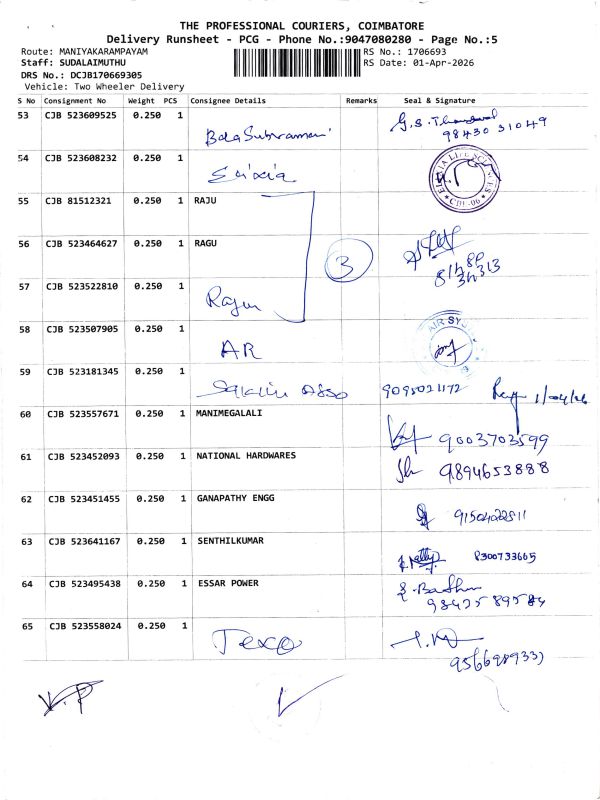 THE PROFESSIONAL COURIERS, COIMBATORE
Delivery Runsheet - PCG - Phone No.:9047080280 - Page No.:5
Route: MANIYAKARAMPAYAM RS No.: 1706693
Staff: SUDALAIMUTHU RS Date: 01-Apr-2026
DRS No.: DCJB170669305
Vehicle: Two Wheeler Delivery
S No Consignment No Weight PCS Consignee Details Remarks Seal & Signature
53 CJB 523609525 0.250 1 BalaSubramani 98430 31049
54 CJB 523608232 0.250 1 Elixia
55 CJB 81512321 0.250 1 RAJU
56 CJB 523464627 0.250 1 RAGU 3
57 CJB 523522810 0.250 1 Rajan
58 CJB 523507905 0.250 1 AR AIR
59 CJB 523181345 0.250 1 9095021172 1/04/26
60 CJB 523557671 0.250 1 MANIMEGALALI 9003703599
61 CJB 523452093 0.250 1 NATIONAL HARDWARES 9894653888
62 CJB 523451455 0.250 1 GANAPATHY ENGG
63 CJB 523641167 0.250 1 SENTHILKUMAR 8300733665
64 CJB 523495438 0.250 1 ESSAR POWER
65 CJB 523558024 0.250 1 Texo
V.P